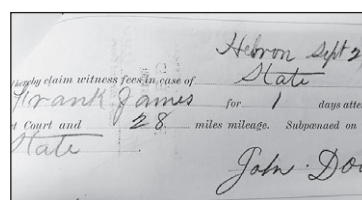 Hebron Sept 2
hereby claim witness fees in case of State
Frank James for 1 days atte
t Court and 28 miles mileage. Subpœnaed on
State
John Do